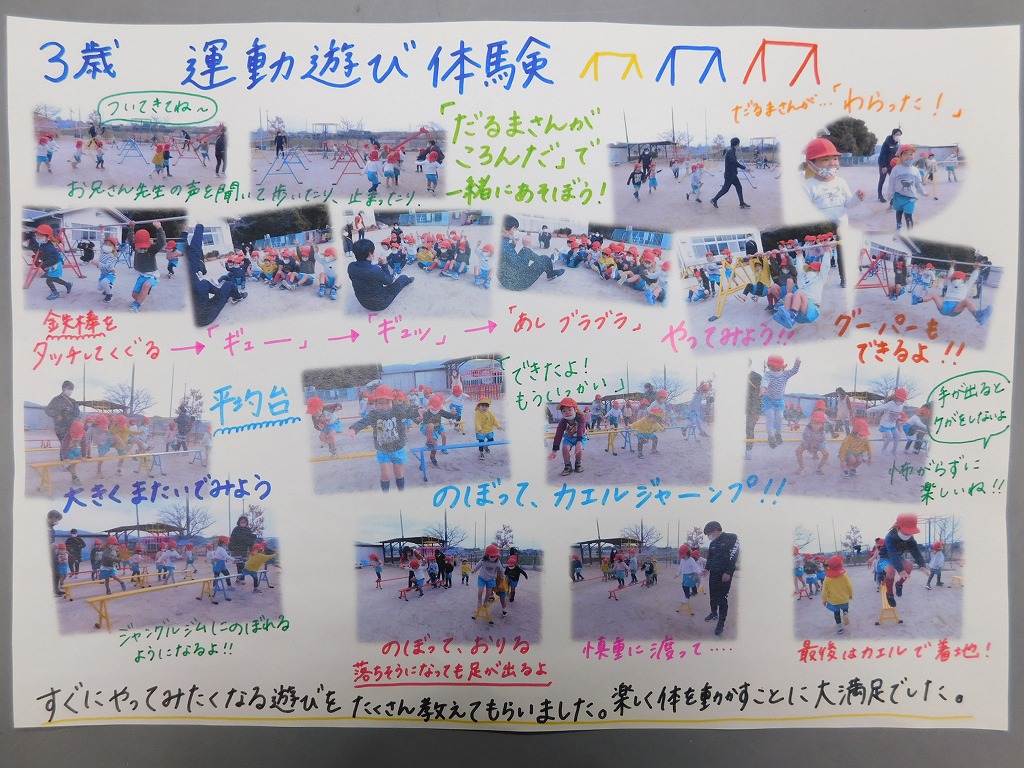 3歳 運動遊び体験
ついてきてね～
お兄さん先生の声を聞いて歩いたり、止まったり。
「だるまさんが
ころんだ」で
一緒にあそぼう！
だるまさんが…「わらった！」
鉄棒を
タッチしてくぐる→「ギューー」→「ギュッ」→「あし ブラブラ」
やってみよう!!
グーパーも
できるよ!!
平均台
「できたよ！
もういっかい」
手が出ると
ケガをしないよ
怖がらずに
楽しいね!!
大きくまたいでみよう
のぼって、カエルジャーンプ!!
ジャングルジムにのぼれる
ようになるよ!!
のぼって、おりる
落ちそうになっても足が出るよ
慎重に渡って‥‥
最後はカエルで着地！
すぐにやってみたくなる遊びをたくさん教えてもらいました。楽しく体を動かすことに大満足でした。